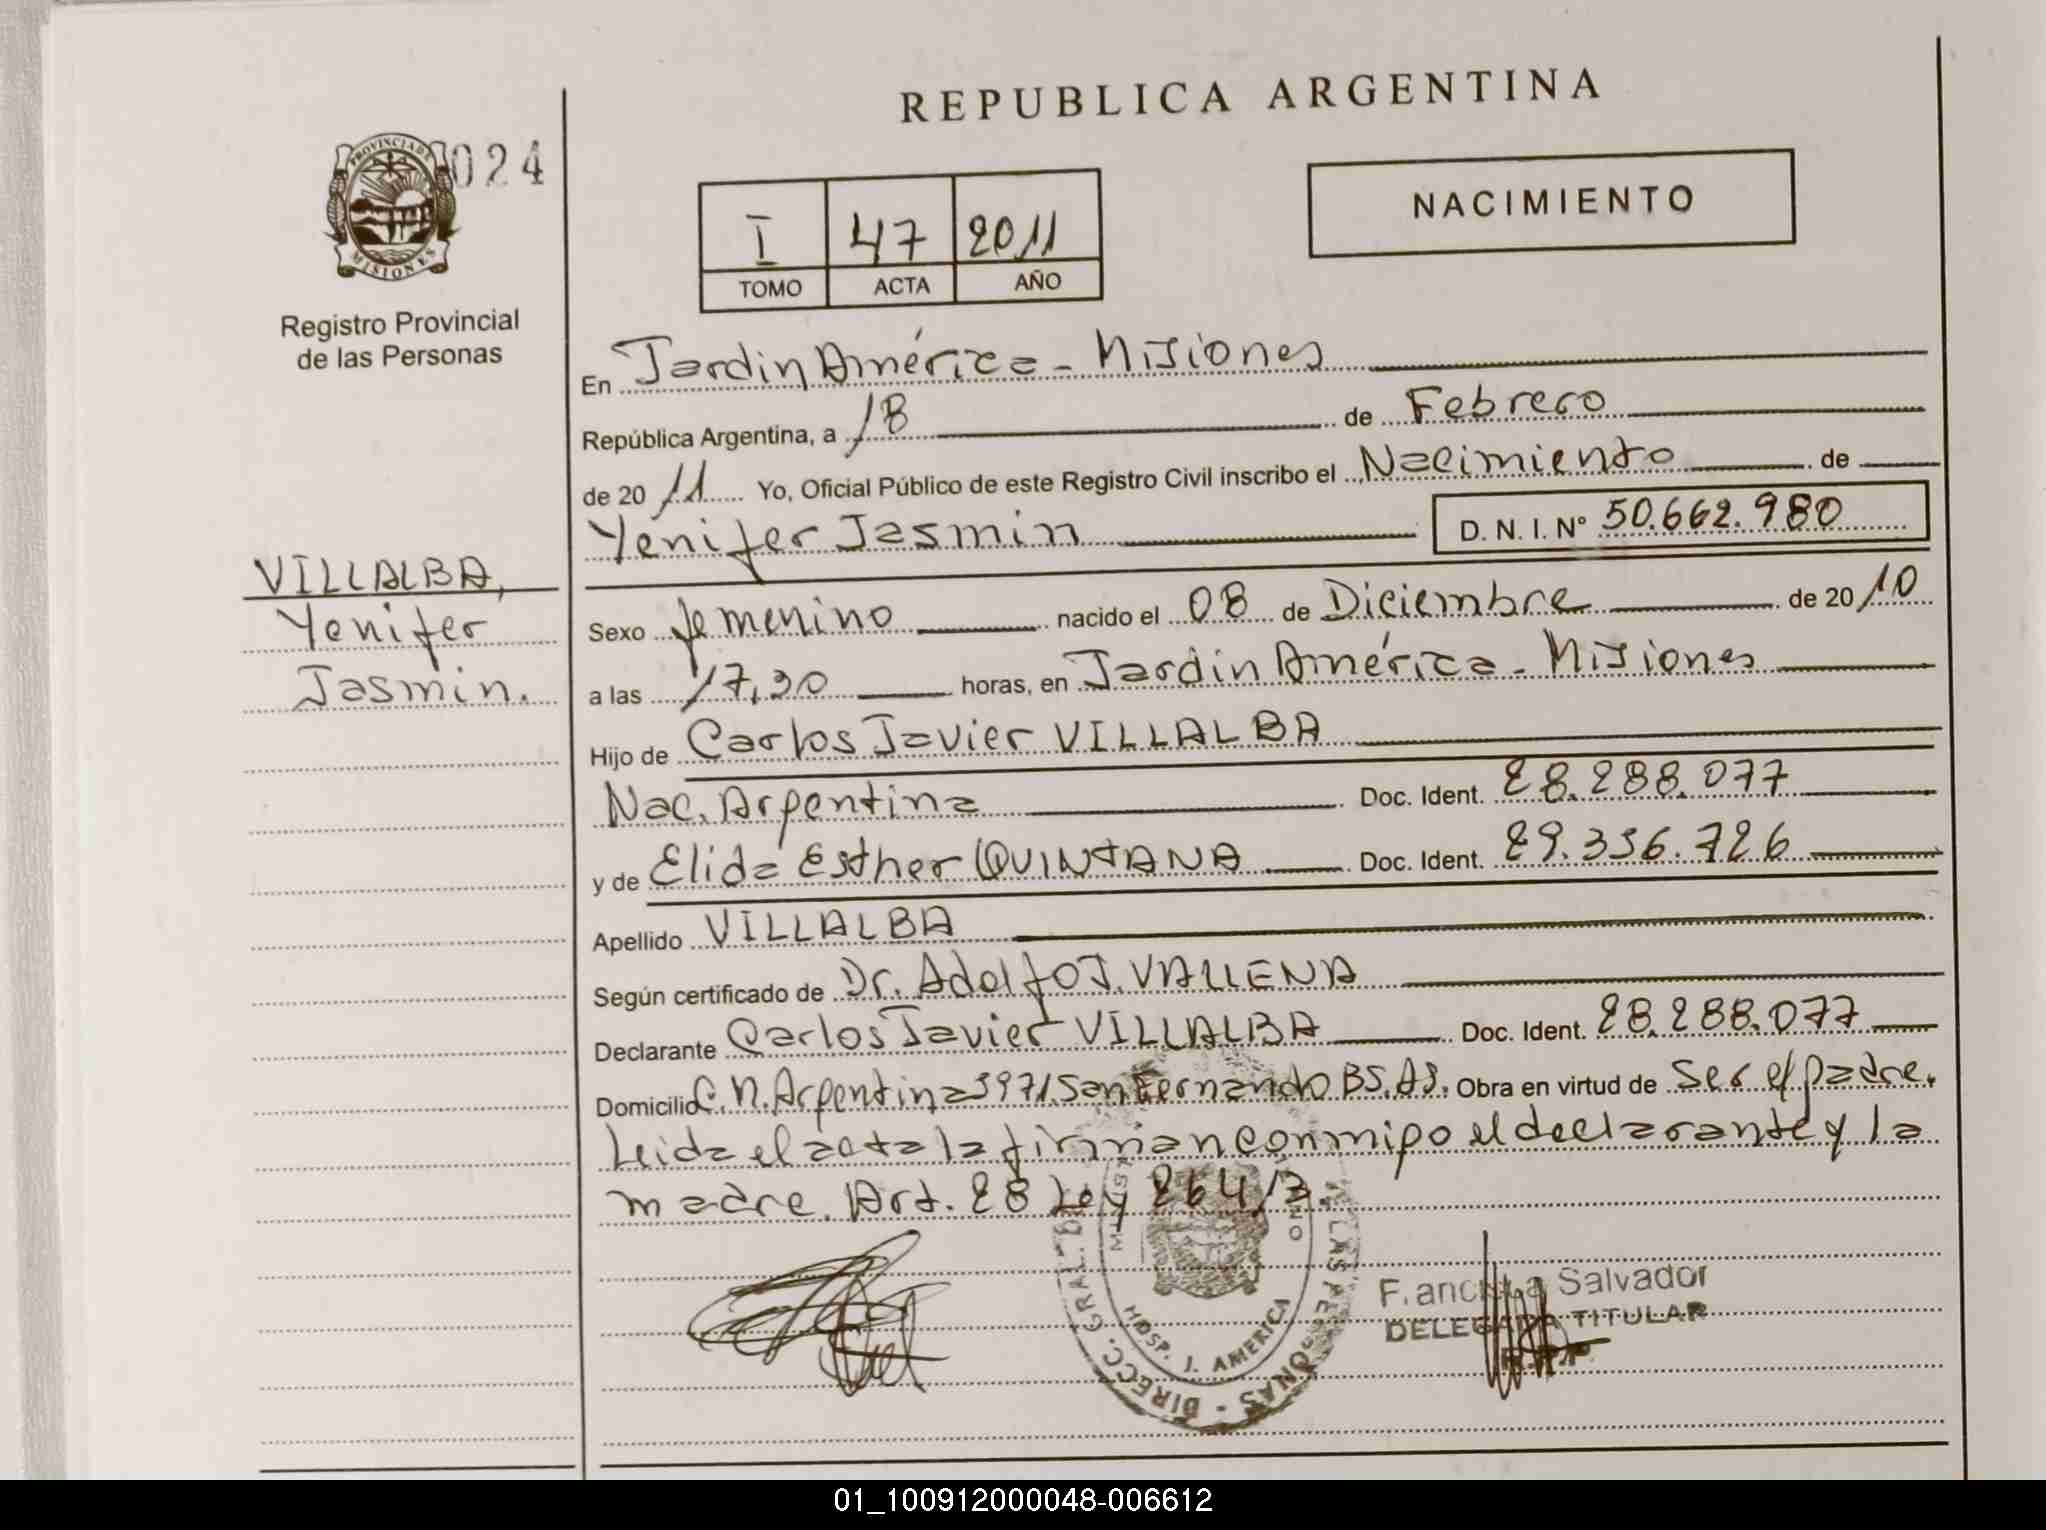 REPUBLICA ARGENTINA
PROVINCIA DE
MISIONES
024
Registro Provincial
de las Personas
I 47 2011
TOMO ACTA AÑO
NACIMIENTO
En Jardin América - Misiones
República Argentina, a 18 de Febrero
de 20 11 Yo, Oficial Público de este Registro Civil inscribo el Nacimiento de
Yenifer Jasmin D. N. I. Nº 50.662.980
VILLALBA,
Yenifer
Jasmin.
Sexo femenino nacido el 08 de Diciembre de 20 10
a las 17,30 horas, en Jardin América - Misiones
Hijo de Carlos Javier VILLALBA
Nac. Argentina Doc. Ident. 28.288.077
y de Elida Esther QUINTANA Doc. Ident. 29.336.726
Apellido VILLALBA
Según certificado de Dr. Adolfo J. VALLENA
Declarante Carlos Javier VILLALBA Doc. Ident. 28.288.077
Domicilio C. N. Argentina 3971. San Fernando BS. AS. Obra en virtud de ser el padre.
Leida el acta la firman conmigo el declarante y la
madre. Art. 28 Ley 26413.
DIRECC. GRAL. LAS PERSONAS -
HOSP. J. AMERICA
Francisca Salvador
DELEGADA TITULAR
R.P.P.
01_100912000048-006612